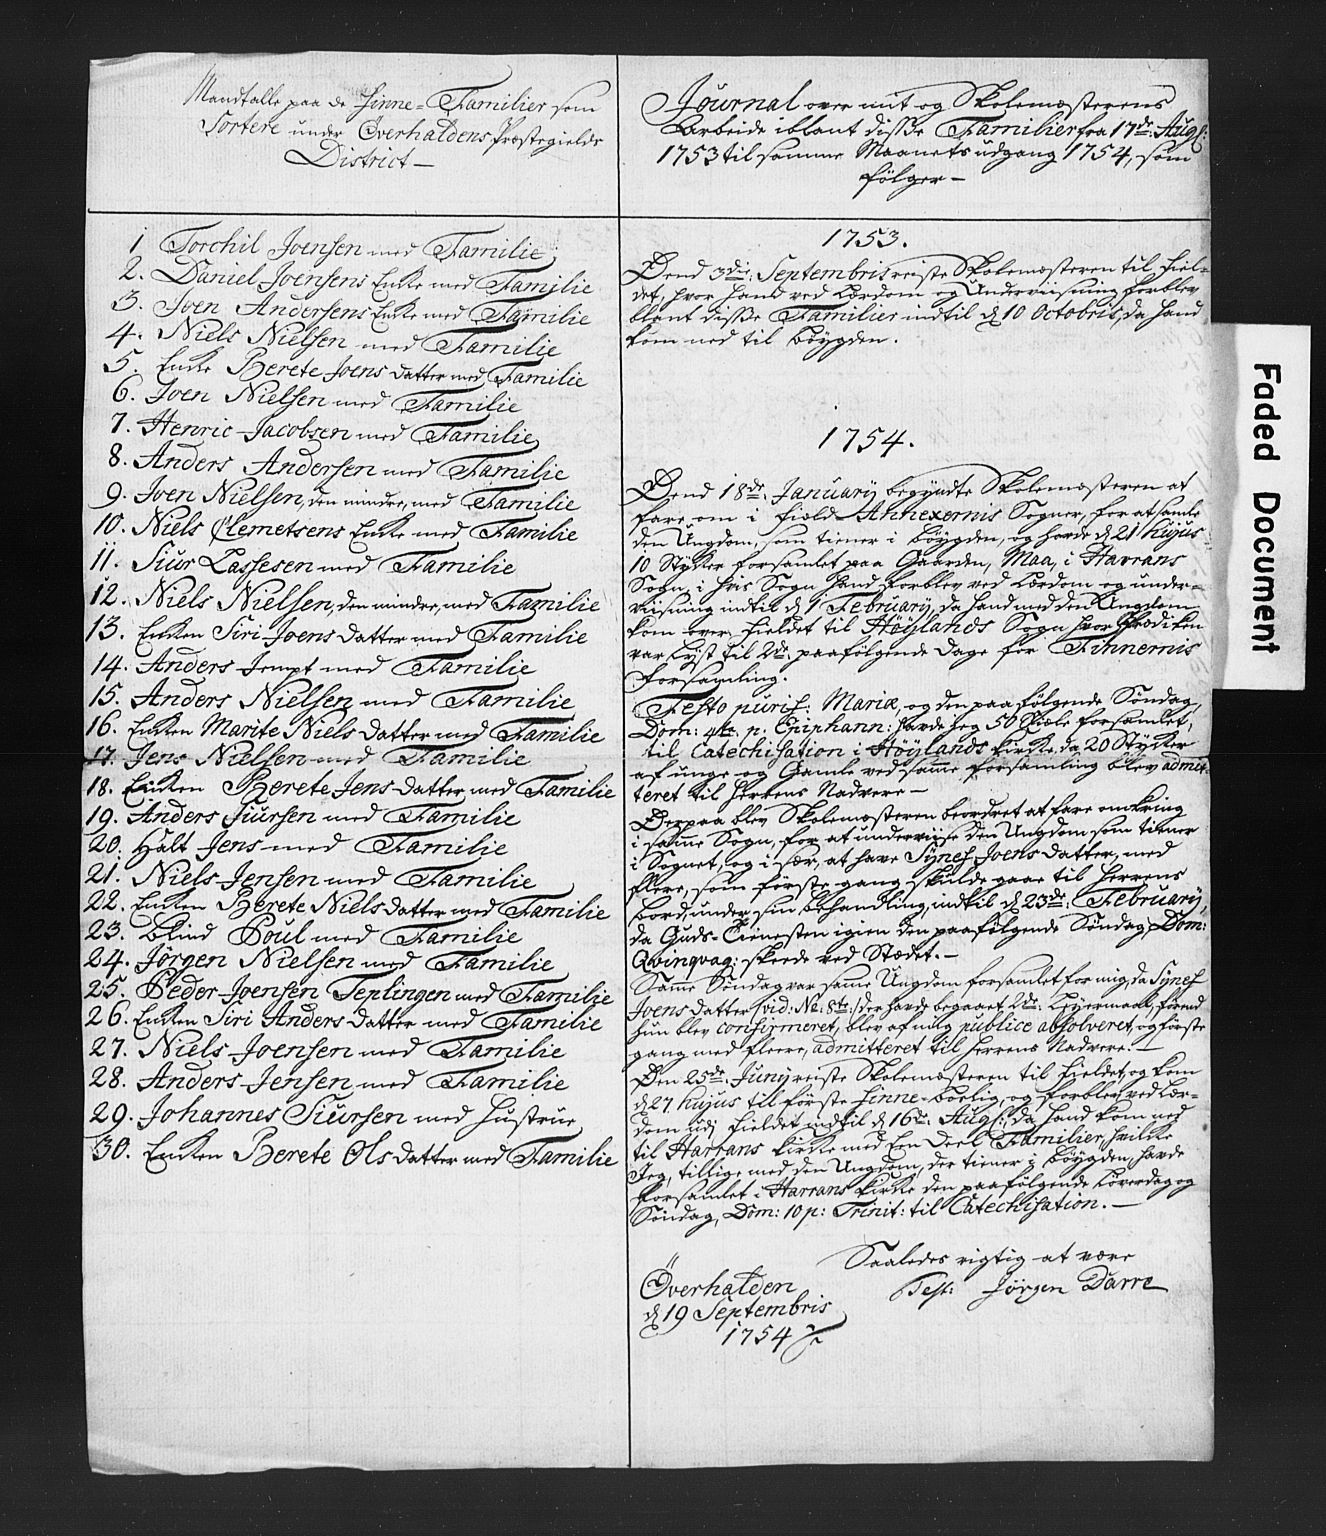 Mandtalle paa de Finne-Familier som
Sortere under Overhaldens Præstegields
District—
1 Torchil Joensen med Familie
2. Daniel Joensens Enke med Familie
3. Joen Andersens Enke med Familie
4. Niels Nielsen med Familie
5. Enke Berete Joens datter med Familie
6. Joen Nielsen med Familie
7. Henric Jacobsen med Familie
8. Anders Andersen med Familie
9. Joen Nielsen, den mindre, med Familie
10. Niels Clemetsens Enke med Familie
11. Siur Lassesen med Familie
12. Niels Nielsen, den mindre, med Familie
13. Enken Siri Joens datter med Familie
14. Anders Jempt med Familie
15. Anders Nielsen med Familie
16. Enken Marite Niels datter med Familie
17. Jens Nielsen med Familie
18. Enken Berete Jens datter med Familie
19. Anders Siursen med Familie
20. Halt Jens med Familie
21. Niels Jensen med Familie
22. Enken Berete Niels datter med Familie
23. Blind Poul med Familie
24. Jørgen Nielsen med Familie
25. Peder Joensen Seplingen med Familie
26. Enken Siri Anders datter med Familie
27. Niels Joensen med Familie
28. Anders Jensen med Familie
29. Johannes Siursen med Hustrue
30. Enken Berete Ols datter med Familie
Journal over mit og Skolemæsterens
Arbeide iblant disse Familier fra 17de: Aug:
1753 til samme Maanets udgang 1754, som
følger—
1753.
Dend 3die: Septembris reiste Skolemæsteren til Fiel-
det, hvor hand ved Lærdom og Underviisning forblev
blant disse Familier indtil d 10 Octobris, da hand
kom ned til bøygden.
1754.
Dend 18de: January begyndte Skolemæsteren at
fare om i Field Annexernis Sogner, for at samle
den Ungdom, som tiener i bøygden, og havde d 21 hujus
10 Stykker forsamlet paa Gaarden, Maa, i Harrans
Sogn, i hvis Sogn hand forblev ved Lærdom og under-
viisning indtil d 1 February, da hand med den Ungdom
kom over Fieldet til Høylands Sogn hvor Prædiken
var lyst til 2de paafølgende dage for Finnernis
forsamling.
Festo purif: Mariæ, og den paafølgende Søndag,
Dom: 4te. p. Epiphann: havde jeg 50 Siæle forsamlet,
til Catechisation i Høylands kirke, da 20 Stykker
af unge og Gamle ved samme forsamling blev admit-
teret til Herrens Nadvere—
Derpaa blev Skolemæsteren beordret at fare omkring
i samme Sogn, for at underviise den Ungdom som tiener
i Sognet, og i sær, at have Synef Joens datter, med
flere, som første gang skulde gaae til Herrens
bord, under sin behandling, indtil d 23de: February,
da Guds-Tienesten igien den paafølgende Søndag, Dom:
Qvinqvag: skeede ved Stædet.—
Samme Søndag var samme Ungdom forsamlet for mig, da Synef
Joens datter /:vid: No: 8te:/ der havde begaaet 2de: Leyermaal, førend
hun blev confirmeret, blev af mig publice absolveret, og første
gang med fleere, admitteret til Herrens Nadvere.—
Den 25de: Juny reiste Skolemæsteren til Fieldet, og kom
d 27 hujus til første Finne-boelig, og forblev ved Lær-
dom udj Fieldet indtil d 16de: Aug: da hand kom ned
til Harrans kirke med En Deel Familier, hvilke
Jeg, tillige med den Ungdom, der tiener i bøygden, havde
forsamlet i Harrans kirke den paafølgende Løverdag og
Søndag, Dom: 10 p: Trinit: til Catechisation.—
Saaledes rigtig at være
Test: Jørgen Darre
Overhalden
d 19 Septembris
1754
Faded Document